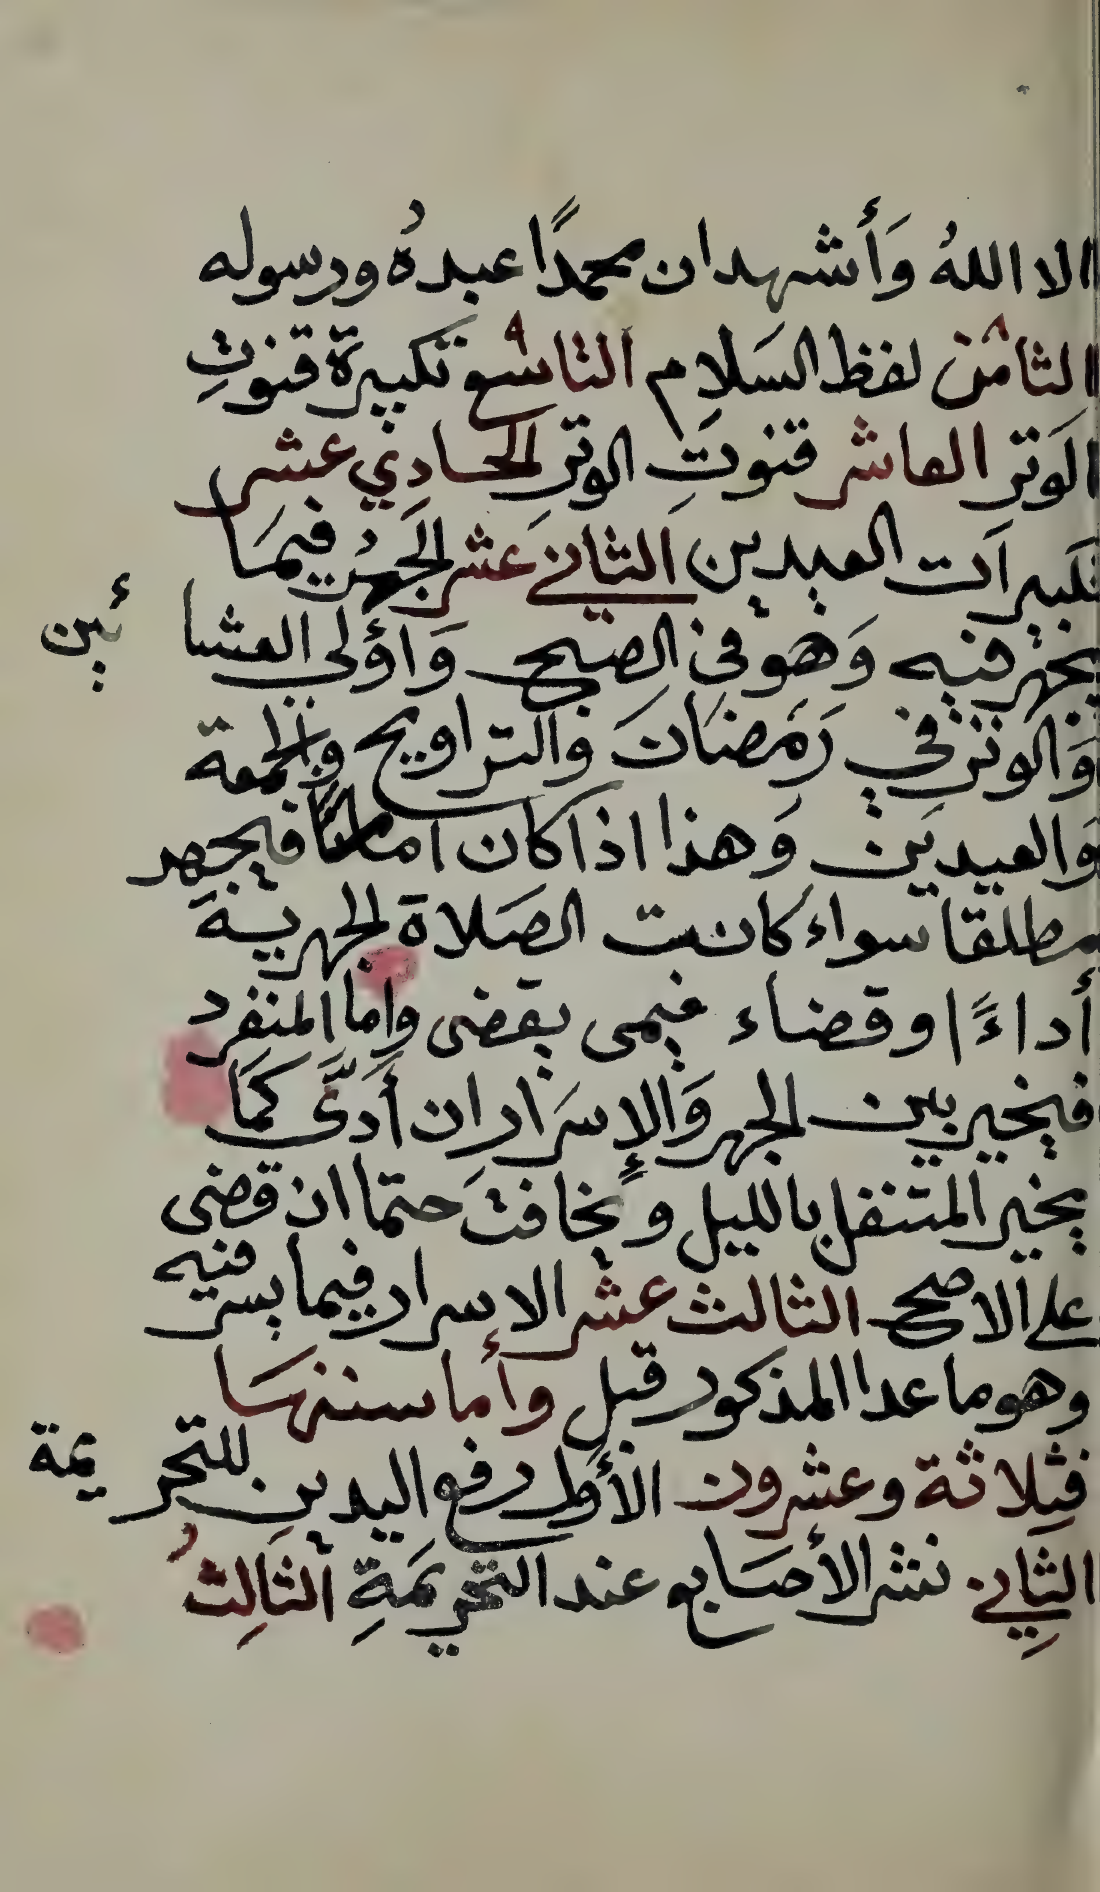 الا اللهُ وَأشهد ان محمدًا عبدهُ ورسوله
الثامن لفظ السَلام التاسع تكبيرة قنوتِ
الوَتر العاشر قنوتِ الوترِ الحادِي عشر
تكبيرات العيدين الثاني عشر الجَهرُ فيمَا
يجهر فيه وَهو في الصبح وَاوْلى العشائين
وَالوتر في رَمَضَانَ والتراويح والجمعة
وَالعيدين وَهذا اذا كان امامًا فيجهر
مطلقا سواء كانت الصَلاة الجهرية
أداءً او قضاء فيمى يقضى واما المنفرد
فيخير بين الجهر وَالإسَرار ان أدَّى كمَا
يخير المتنفل بالليل ويخافت حتما ان قضى
على الاصح الثالث عشر الاسرار فيما يسر فيه
وهو ما عدا المذكور قبل وأما سننهَا
فثلاثة وعشرون الأول رفع اليدين للتحريمة
الثاني نشر الأصَابع عند التحريمَةِ الثالِثُ